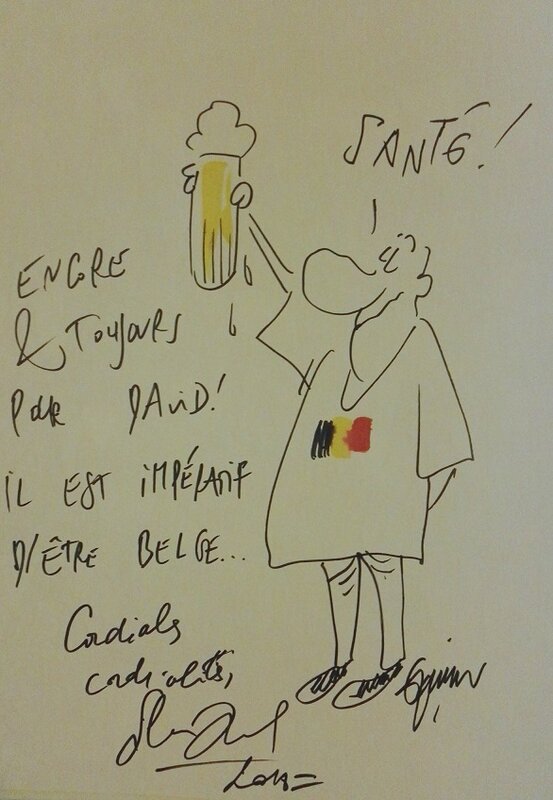 SANTÉ!
ENCORE
& TOUJOURS
POUR DAViD!
iL EST iMPÉRATiF
D'ÊTRE BELGE...
Cordiales
cordialités,